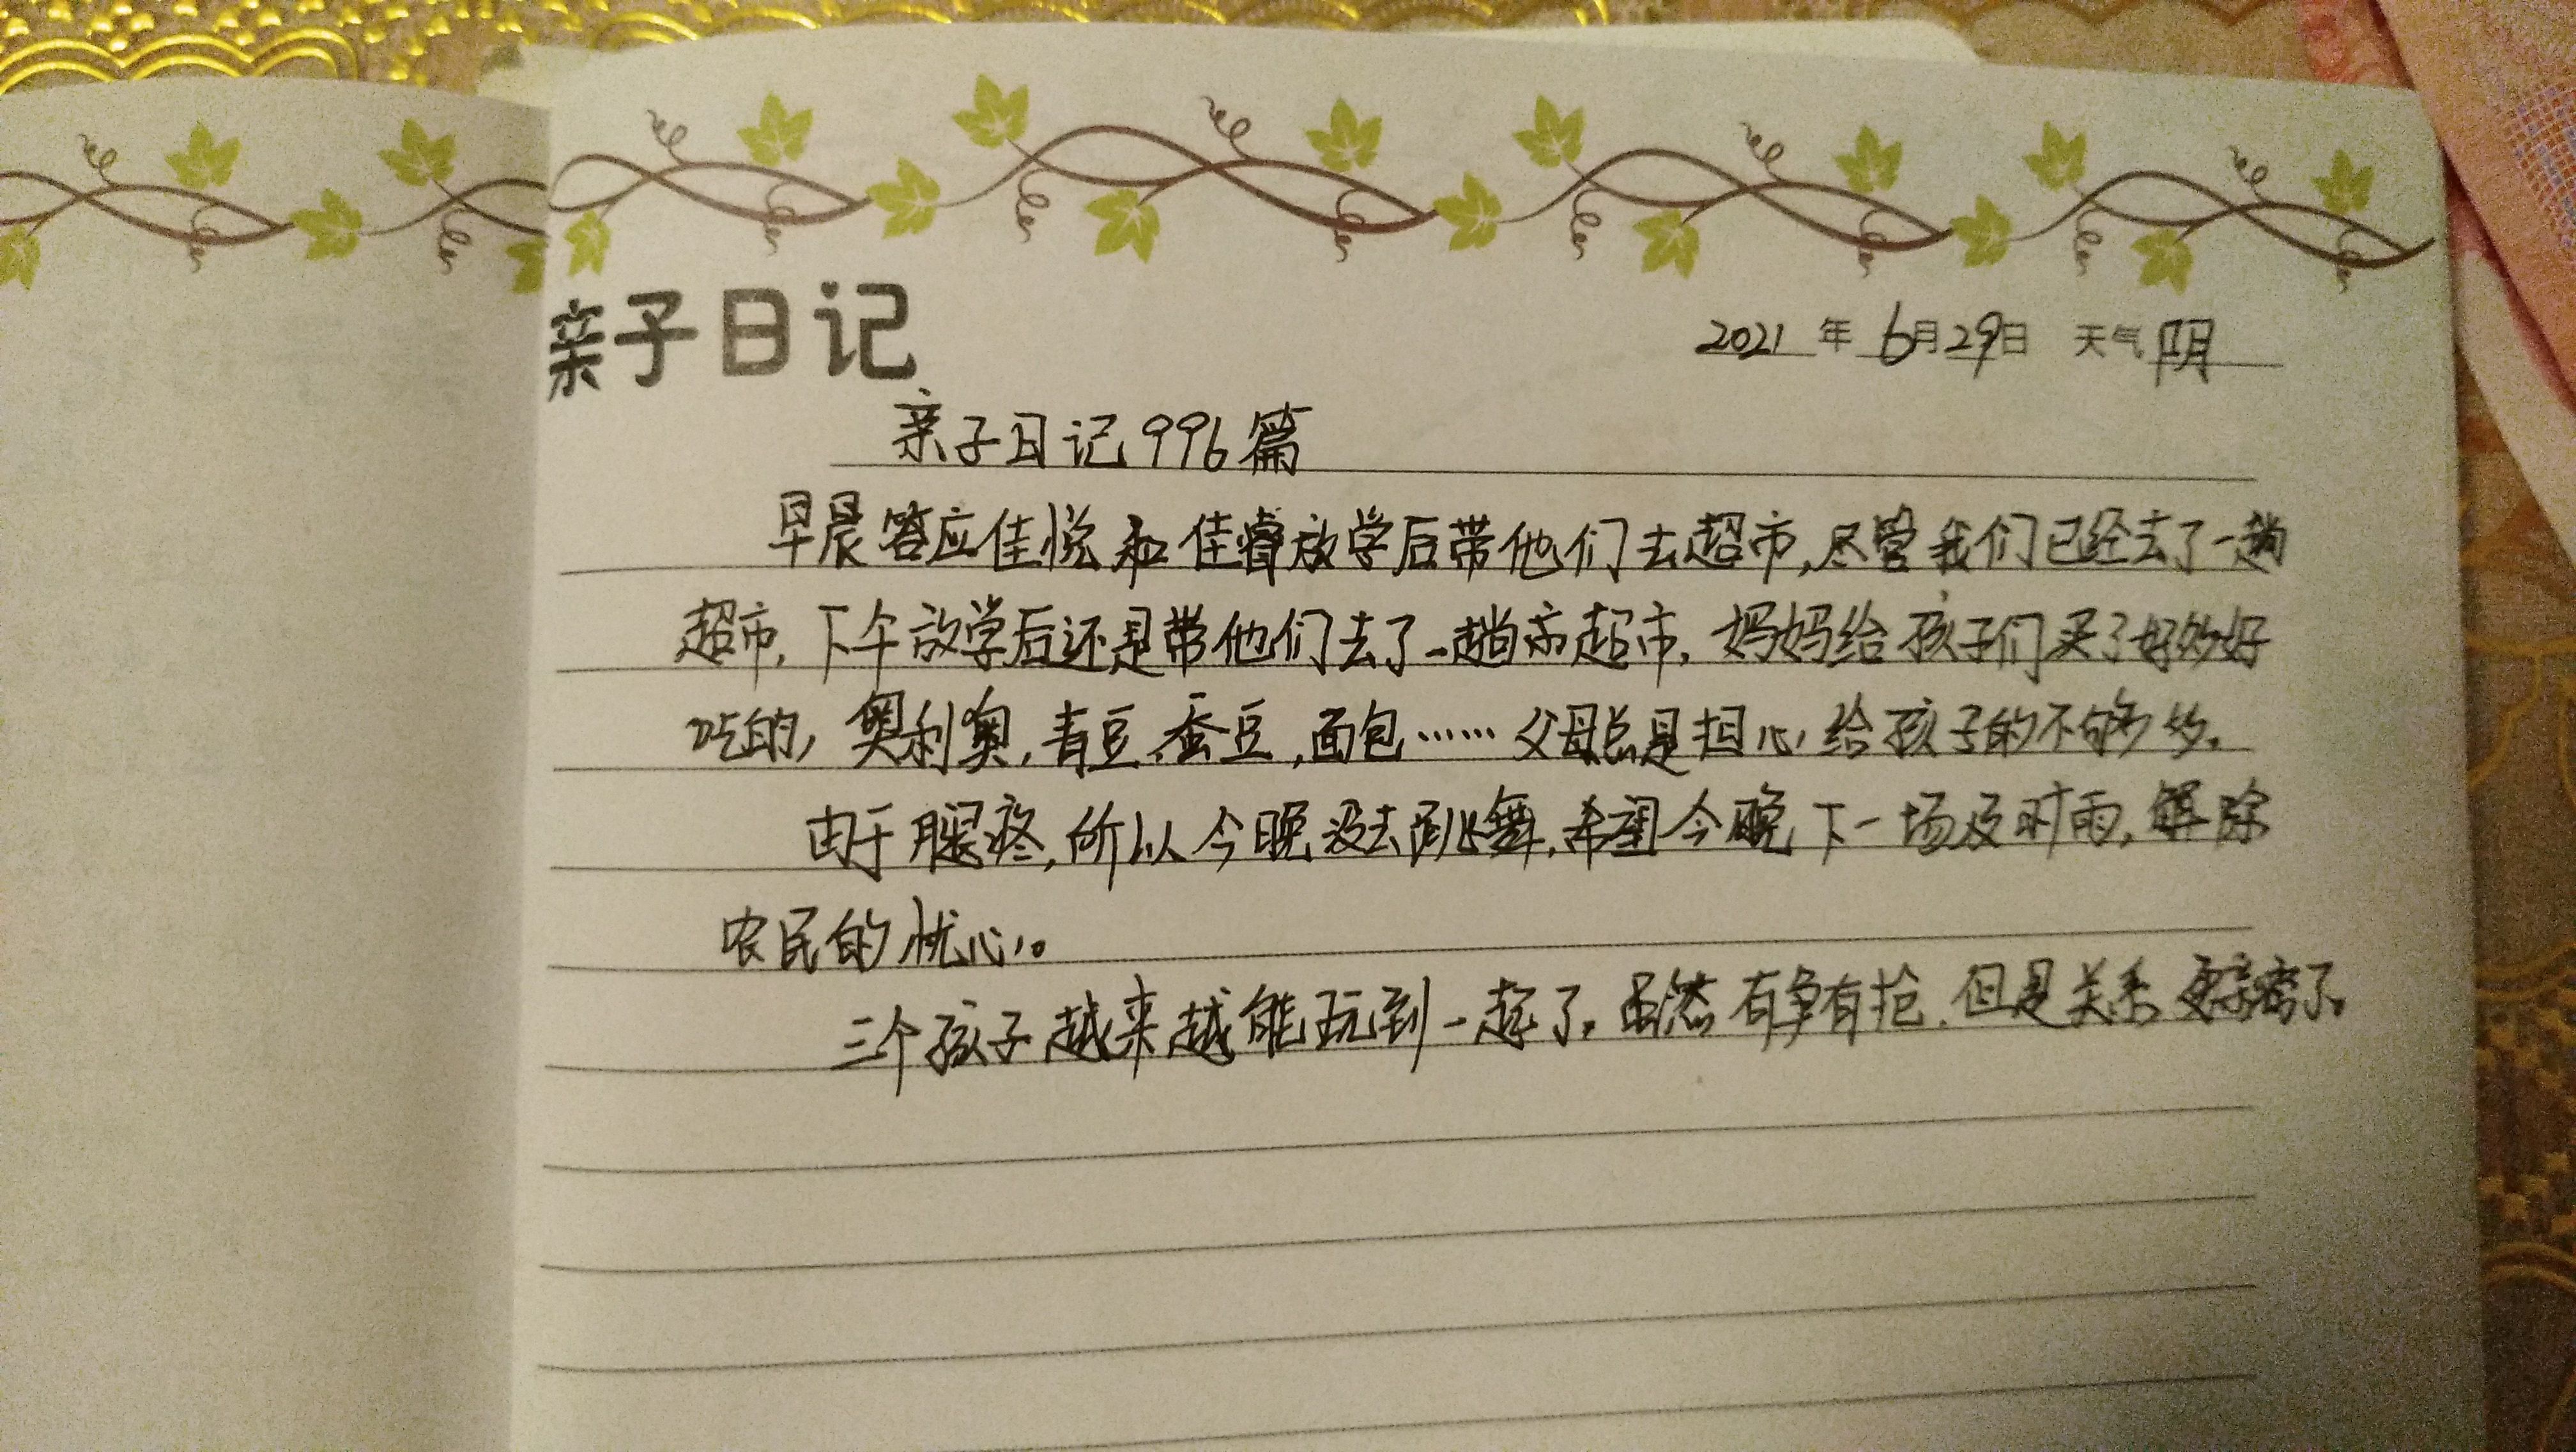 亲子日记
2021 年 6月29日 天气 阴
亲子日记996篇
早晨答应佳悦和佳睿放学后带他们去超市,尽管我们已经去了一趟
超市,下午放学后还是带他们去了一趟超市,妈妈给孩子们买了好多好
吃的,奥利奥,青豆,蚕豆,面包……父母总是担心给孩子的不够多.
由于腿疼,所以今晚没去跳舞,希望今晚下一场及时雨,解除
农民的忧心。
三个孩子越来越能玩到一起了.虽然有争有抢.但是关系更亲密了.